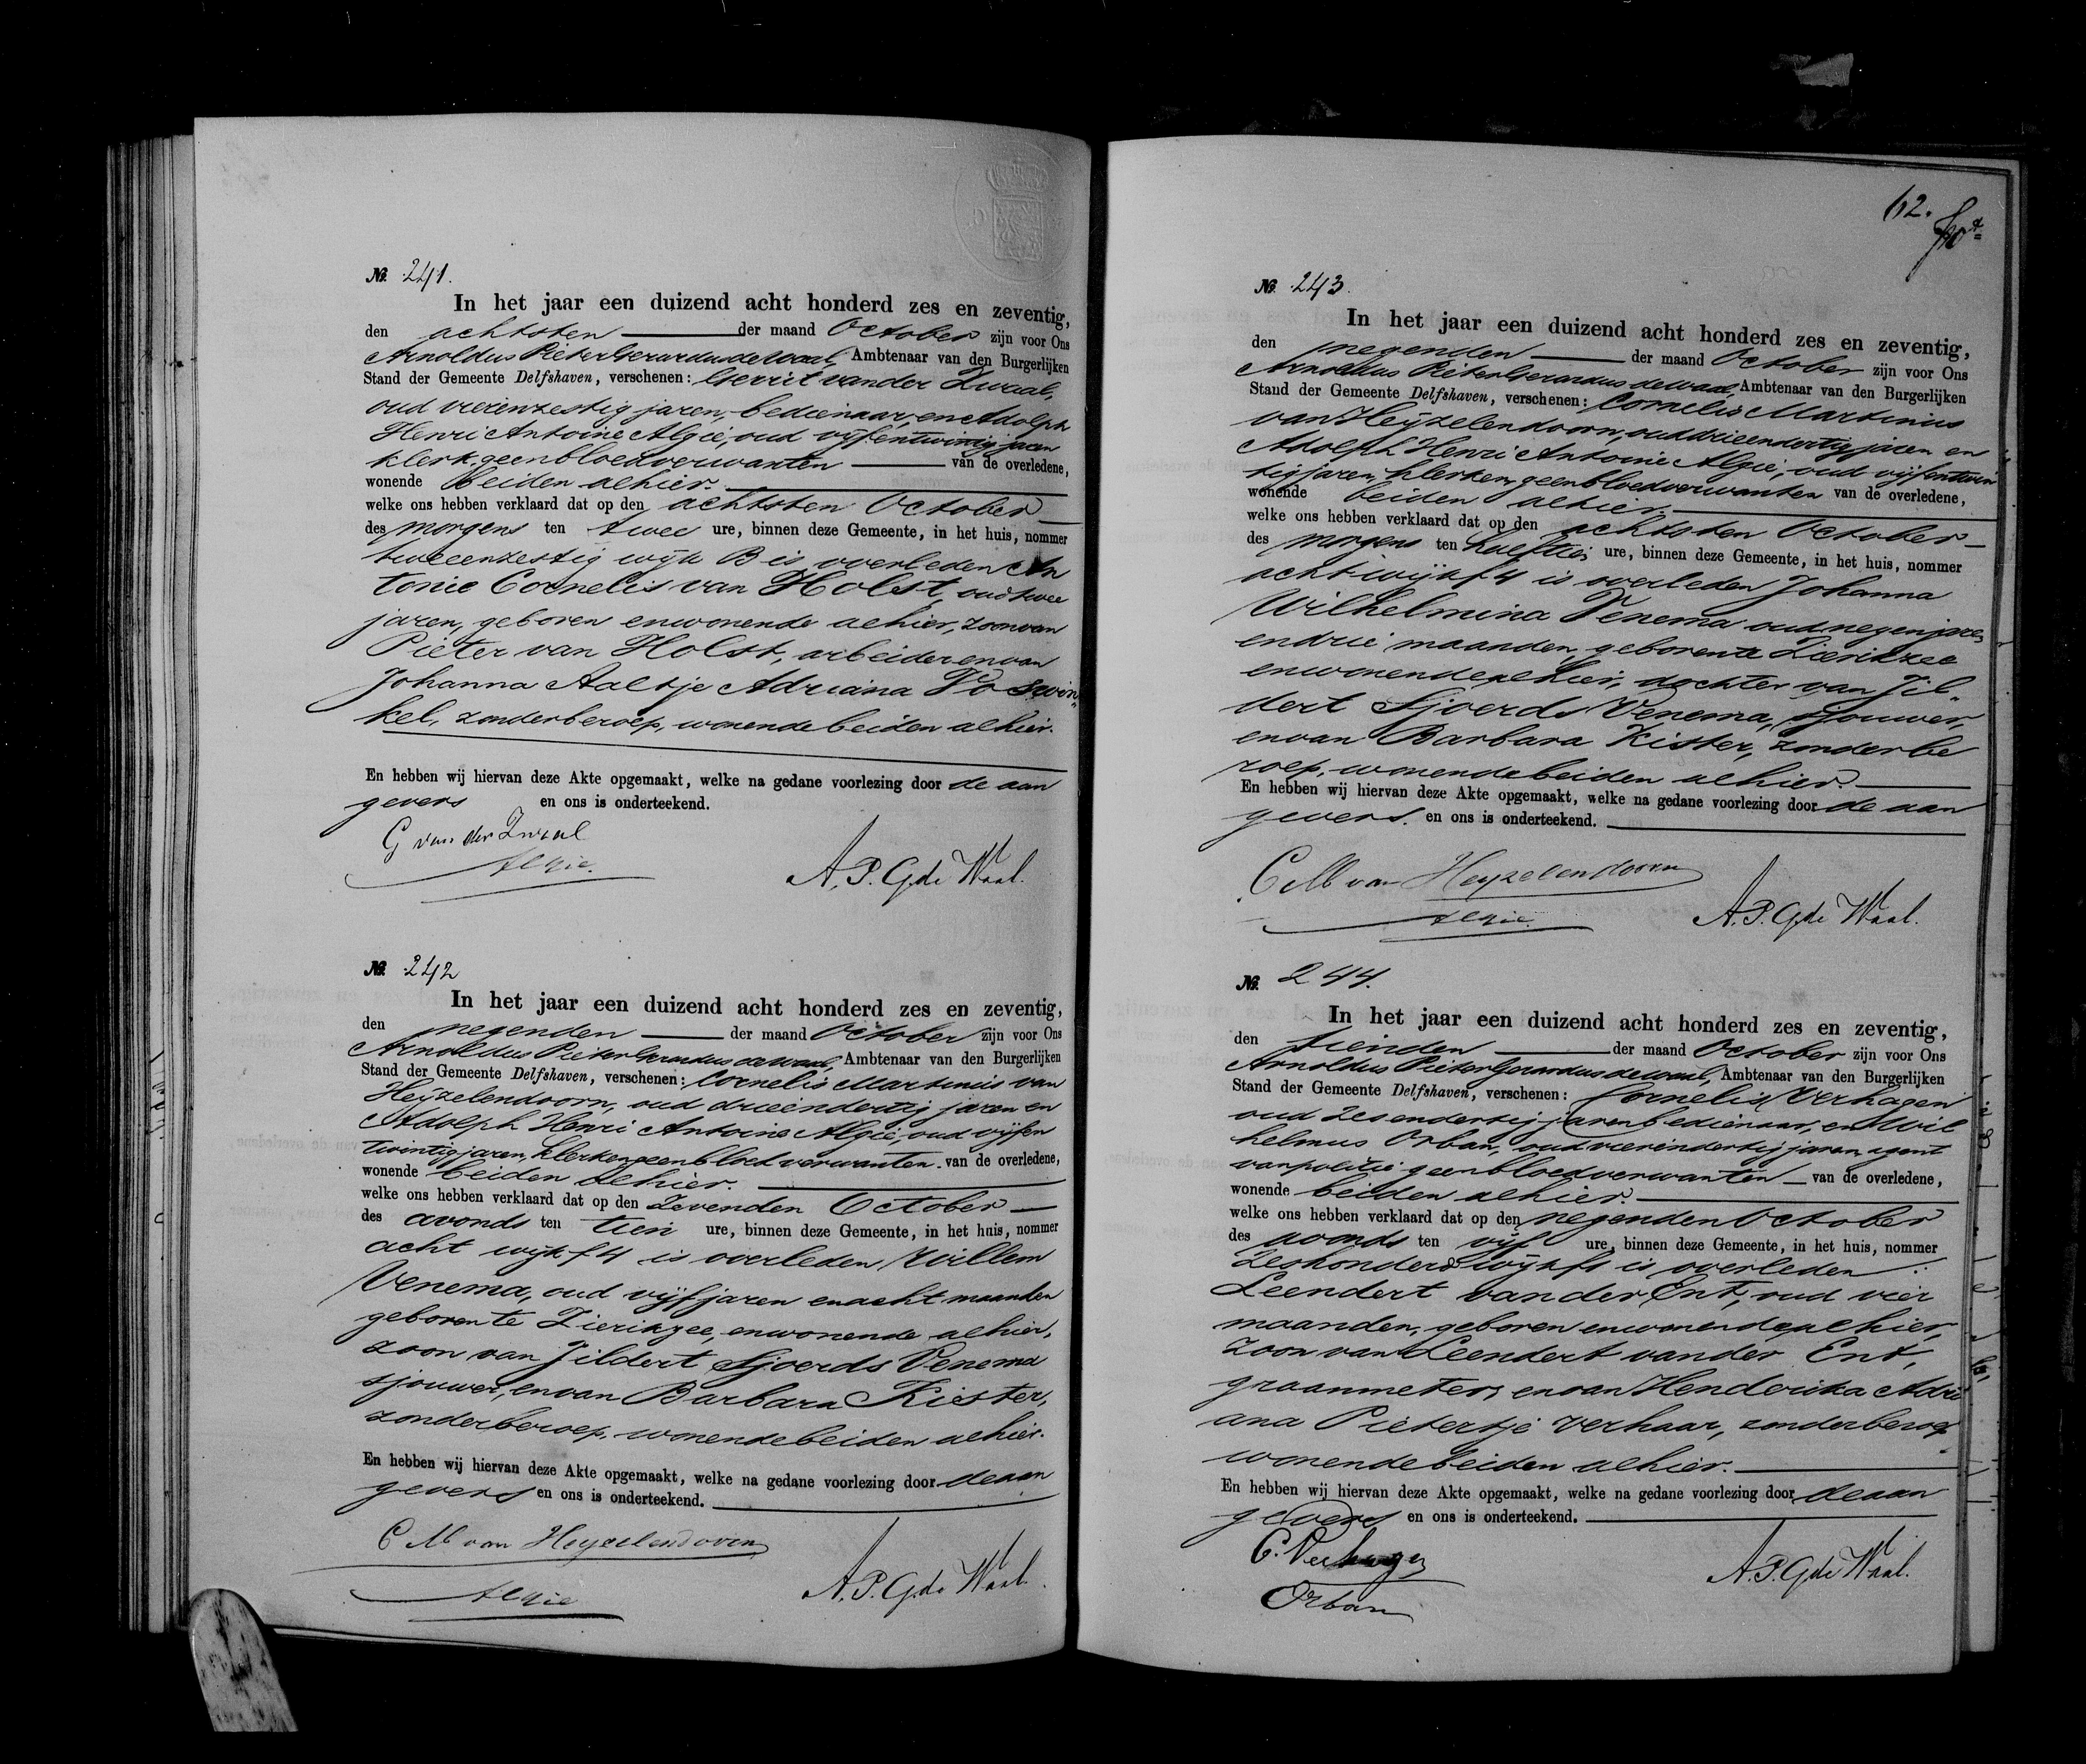 No. 241.
In het jaar een duizend acht honderd zes en zeventig,
den achtsten der maand October zijn voor Ons
Arnoldus Pieter Gerardus de Waal, Ambtenaar van den Burgerlijken
Stand der Gemeente Delfshaven, verschenen: Gerrit van der Zwaal,
oud vierenzestig jaren, bedienaar, en Adolph
Henri Antoine Algie, oud vijfentwintig jaren
klerk, geen bloedverwanten van de overledene,
wonende beiden alhier.
welke ons hebben verklaard dat op den achtsten October
des morgens ten twee ure, binnen deze Gemeente, in het huis, nommer
tweeenzestig wijk B is overleden An
tonie Cornelis van Holst, oud twee
jaren, geboren en wonende alhier, zoon van
Pieter van Holst, arbeider en van
Johanna Aaltje Adriana Poswin„
kel, zonder beroep, wonende beiden alhier.
En hebben wij hiervan deze Akte opgemaakt, welke na gedane voorlezing door de aan
gevers en ons is onderteekend.
G van der Zwaal
Algie.
A. P. G. de Waal.
No. 242
In het jaar een duizend acht honderd zes en zeventig,
den negenden der maand October zijn voor Ons
Arnoldus Pieter Gerardus de Waal, Ambtenaar van den Burgerlijken
Stand der Gemeente Delfshaven, verschenen: Cornelis Martinus van
Heijzelendoorn, oud drieendertig jaren en
Adolph Henri Antoine Algie, oud vijfen
twintig jaren, klerken, geen bloedverwanten van de overledene,
wonende beiden alhier.
welke ons hebben verklaard dat op den zevenden October
des avonds ten tien ure, binnen deze Gemeente, in het huis, nommer
acht wijk f4 is overleden Willem
Venema, oud vijf jaren en acht maanden
geboren te Zierikzee, en wonende alhier,
zoon van Jildert Sjoerds Venema
sjouwer, en van Barbara Kister,
zonder beroep, wonende beiden alhier.
En hebben wij hiervan deze Akte opgemaakt, welke na gedane voorlezing door de aan
gevers en ons is onderteekend.
C M van Heyzelendoorn
Algie
A. P. G. de Waal.
62.
No. 243.
In het jaar een duizend acht honderd zes en zeventig,
den negenden der maand October zijn voor Ons
Arnoldus Pieter Gerardus de Waal, Ambtenaar van den Burgerlijken
Stand der Gemeente Delfshaven, verschenen: Cornelis Martinus
van Heijzelendoorn, oud drieendertig jaren en
Adolph Henri Antoine Algie, oud vijfentwin
tig jaren, klerken, geen bloedverwanten van de overledene,
wonende beiden alhier.
welke ons hebben verklaard dat op den achtsten October
des morgens ten ure, binnen deze Gemeente, in het huis, nommer
acht wijk f4 is overleden Johanna
Wilhelmina Venema oud negen jaren
en drie maanden, geboren te Zierikzee
en wonende alhier, dochter van Jil„
dert Sjoerds Venema, sjouwer,
en van Barbara Kister, zonder be
roep, wonende beiden alhier.
En hebben wij hiervan deze Akte opgemaakt, welke na gedane voorlezing door de aan
gevers. en ons is onderteekend.
C M van Heyzelendoorn
Algie.
A. P. G. de Waal.
No. 244.
In het jaar een duizend acht honderd zes en zeventig,
den tienden der maand October zijn voor Ons
Arnoldus Pieter Gerardus de Waal, Ambtenaar van den Burgerlijken
Stand der Gemeente Delfshaven, verschenen: Cornelis Verhagen
oud zesendertig jaren bedienaar, en Wil
helmus Orban, oud vierendertig jaren, agent
van politie geen bloedverwanten van de overledene,
wonende beiden alhier.
welke ons hebben verklaard dat op den negenden October
des avonds ten vijf ure, binnen deze Gemeente, in het huis, nommer
zeshonderd wijk f1 is overleden
Leendert van der Ent, oud vier
maanden, geboren en wonende alhier,
zoon van Leendert van der Ent,
graanmeter, en van Henderika Adri
ana Pietertje Verhaar, zonder beroep
wonende beiden alhier.
En hebben wij hiervan deze Akte opgemaakt, welke na gedane voorlezing door de aan
gevers en ons is onderteekend.
C. Verhagen
Orban
A. P. G. de Waal.